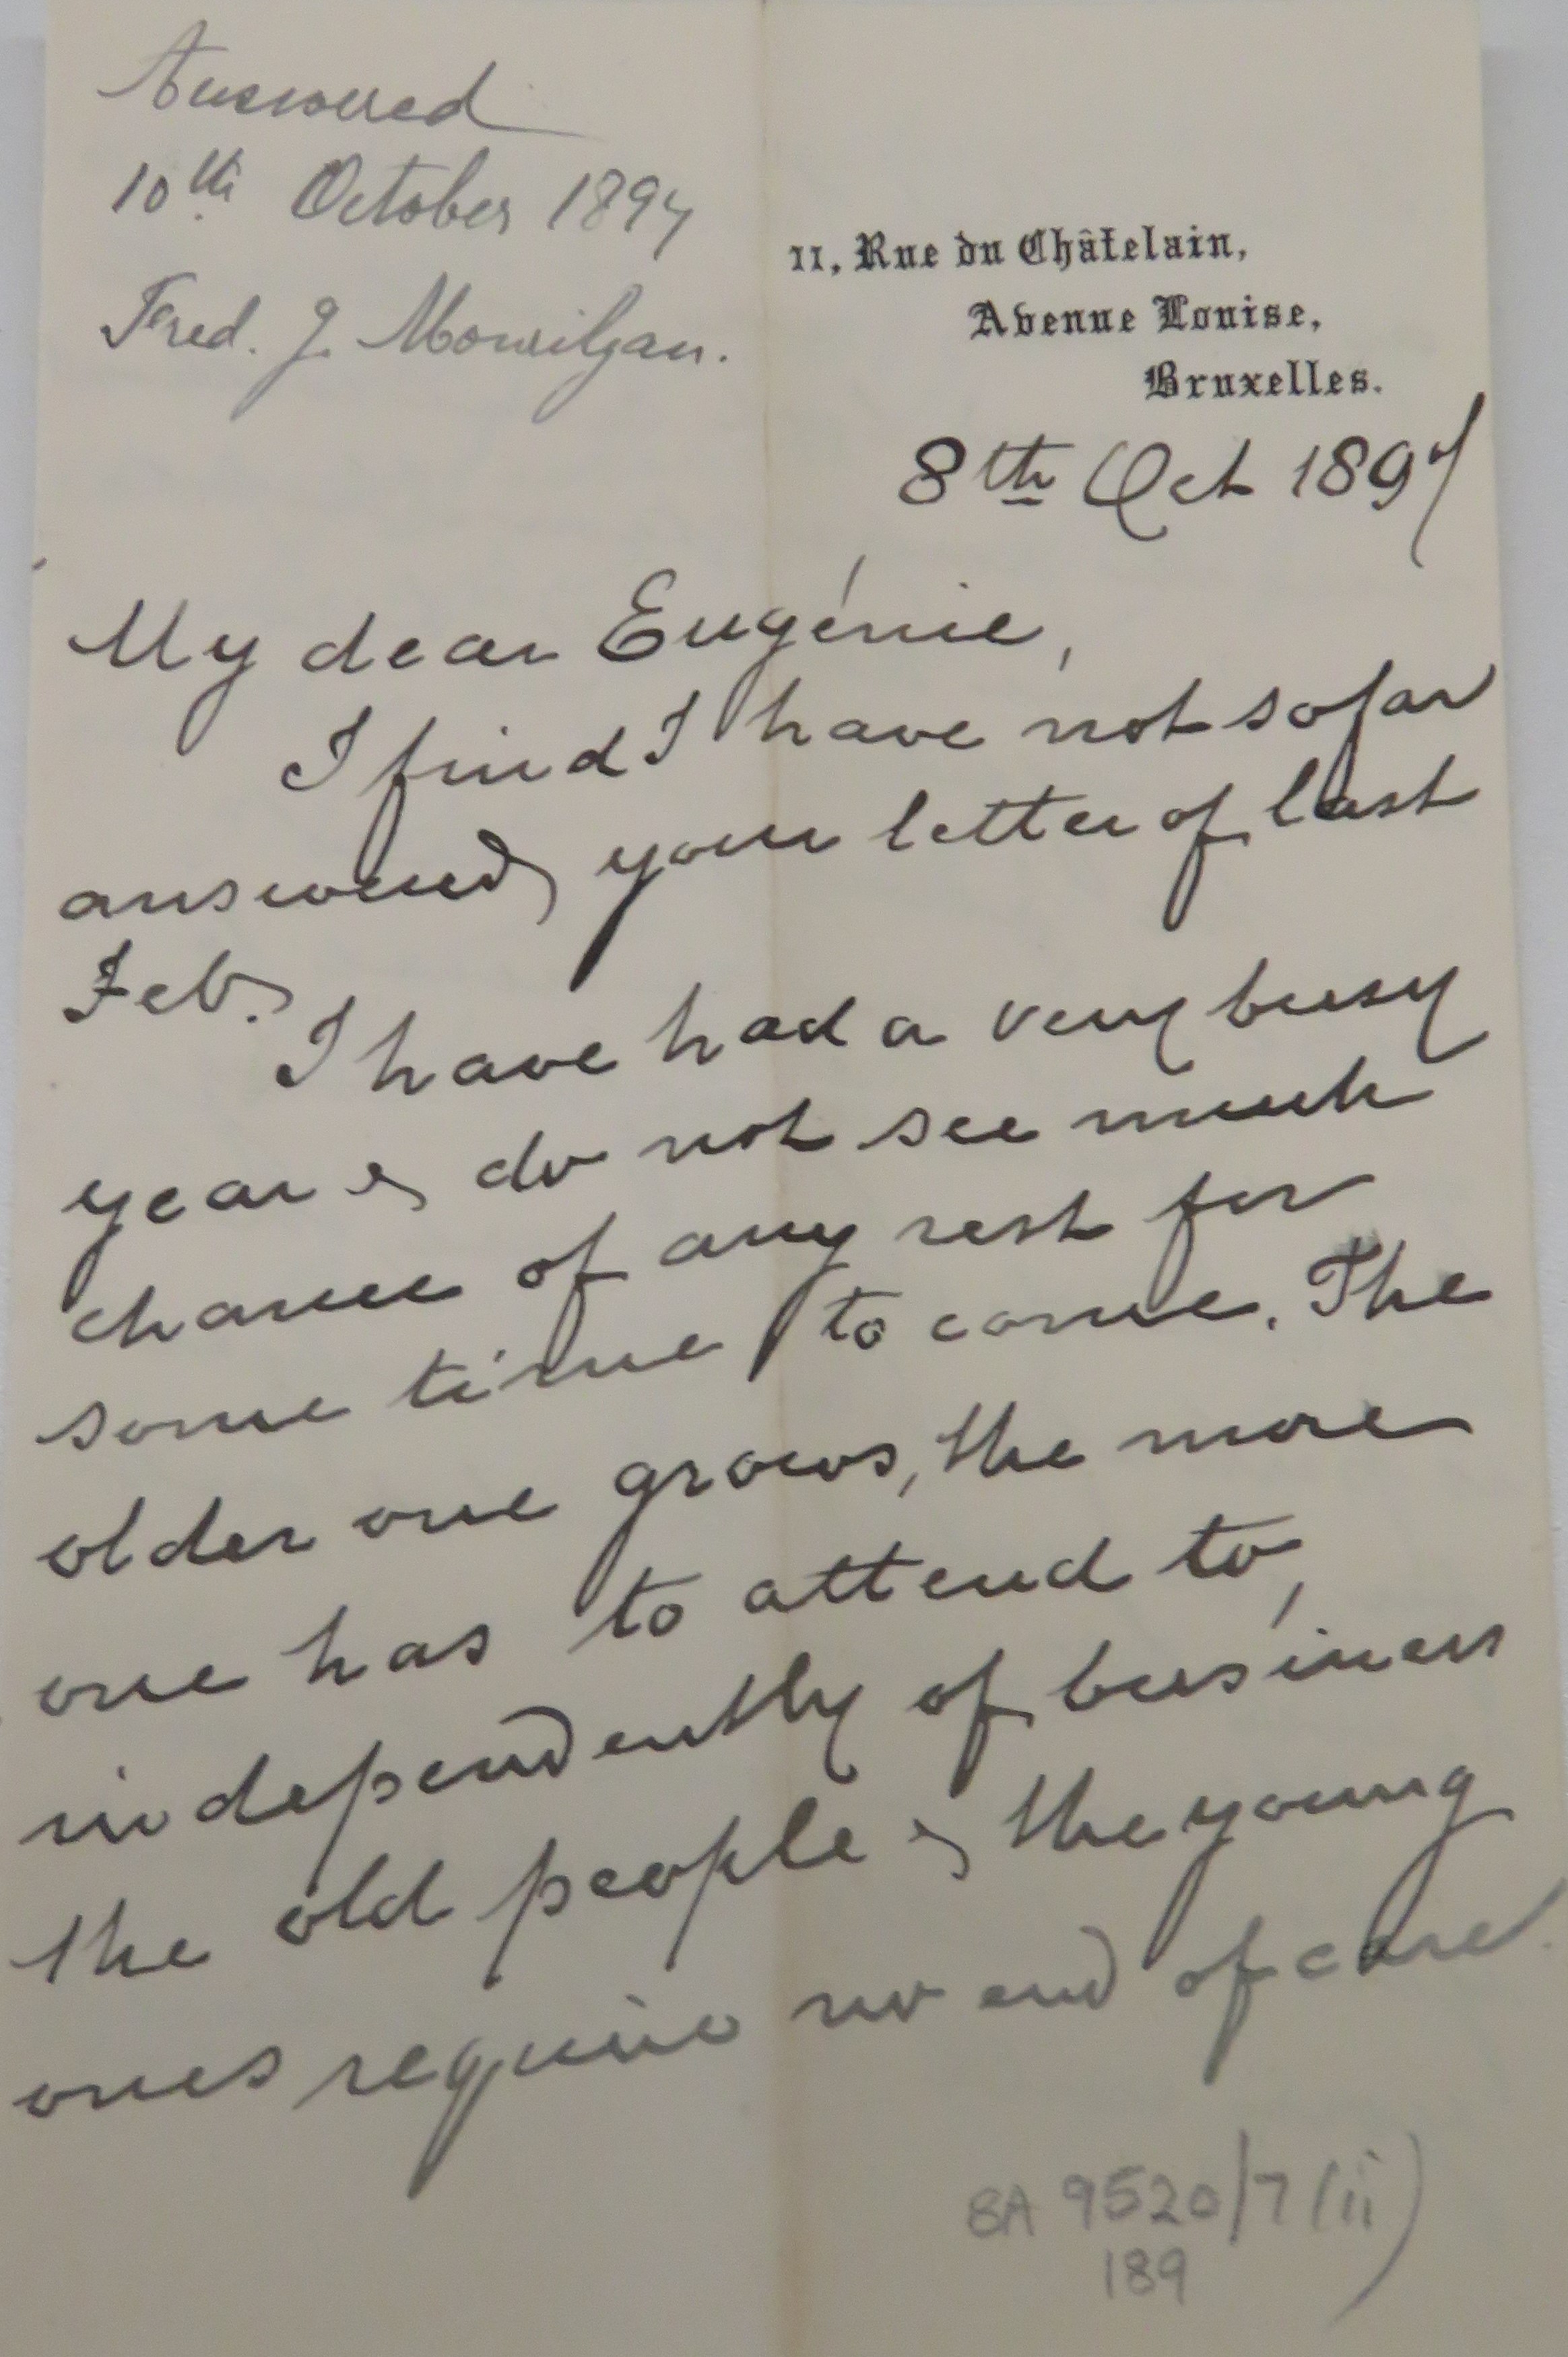 Answered
10th October 1897
Fred. J.
11, Rue du Châtelain,
Avenue Louise,
Bruxelles.
8th Oct 1897
My dear Eugénie,
I find I have not so far
answered your letter of last
Feb.
I have had a very busy
year & do not see much
chance of any rest for
some time to come. The
older one grows, the more
one has to attend to,
independently of business
the old people & the young
ones require no end of care.
8A 9520/7(ii)
189